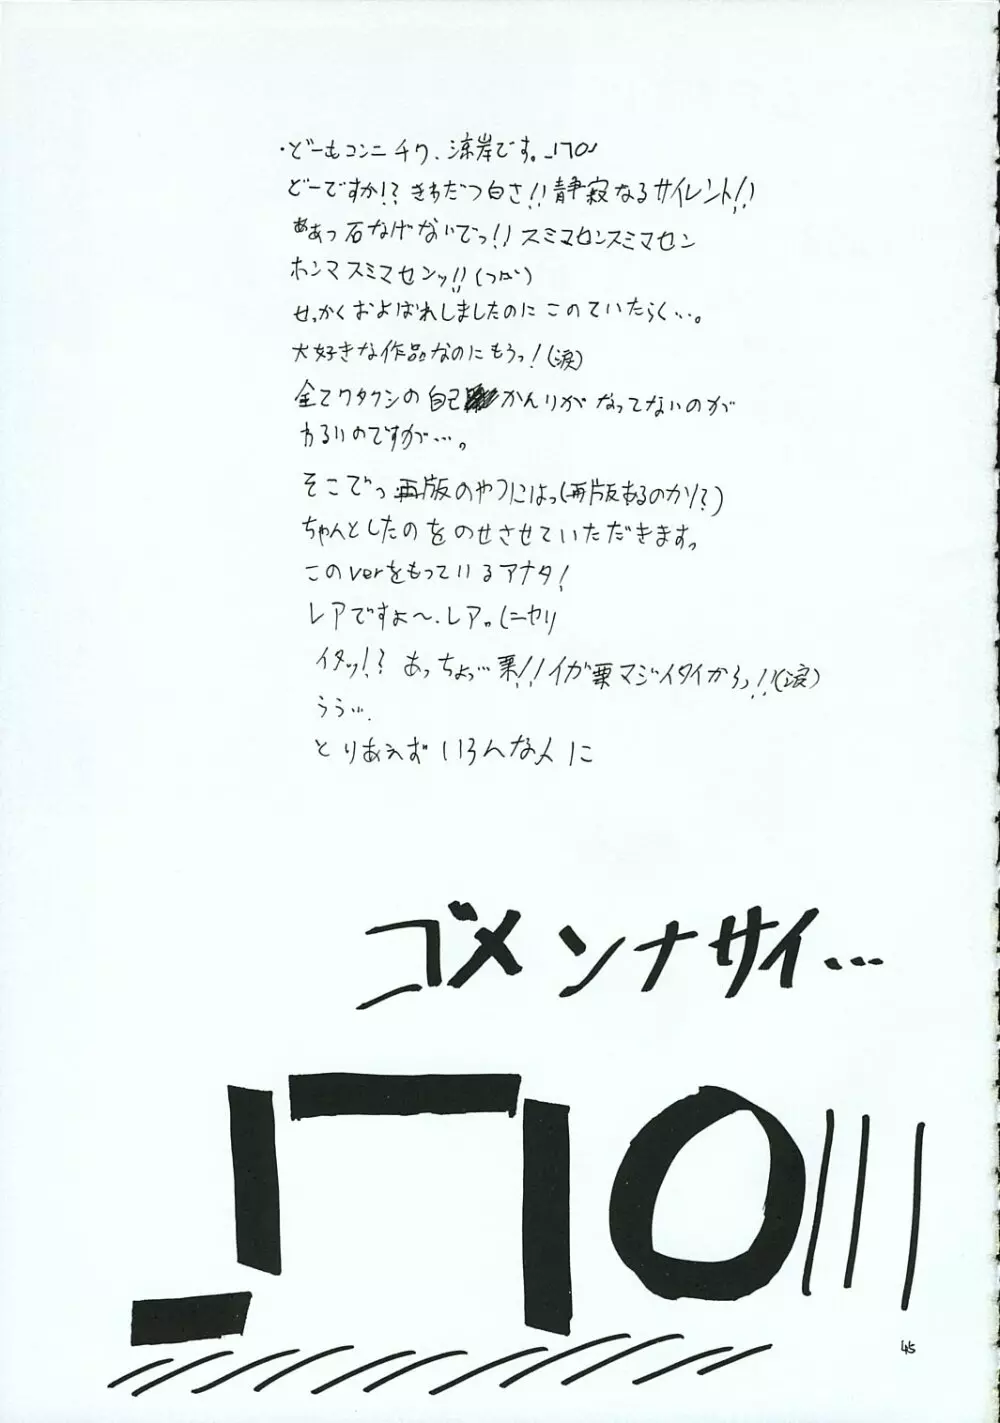 ・どーもコンニチワ、涼岸です。_| ̄|○
どーですか!?きわだつ白さ!!静寂なるサイレント!!
ああっ石なげないでっ!!スミマセンスミマセン
ホンマスミマセンッ!!(つД`)
せっかくおよばれしましたのにこのていたらく…。
大好きな作品なのにもうっ!(涙)
全てワタクシの自己かんりがなってないのが
わるいのですが…。
そこでっ再版のやつにはっ(再版あるのか!?)
ちゃんとしたのをのせさせていただきますっ
このverをもっているアナタ!
レアですよ〜、レア。(ニヤリ
イタッ!?あっちょっ…栗!!イガ栗マジイタイからっ!!(涙)
ううっ…
とりあえずいろんな人に
ゴメンナサイ…
_| ̄|○|||
45